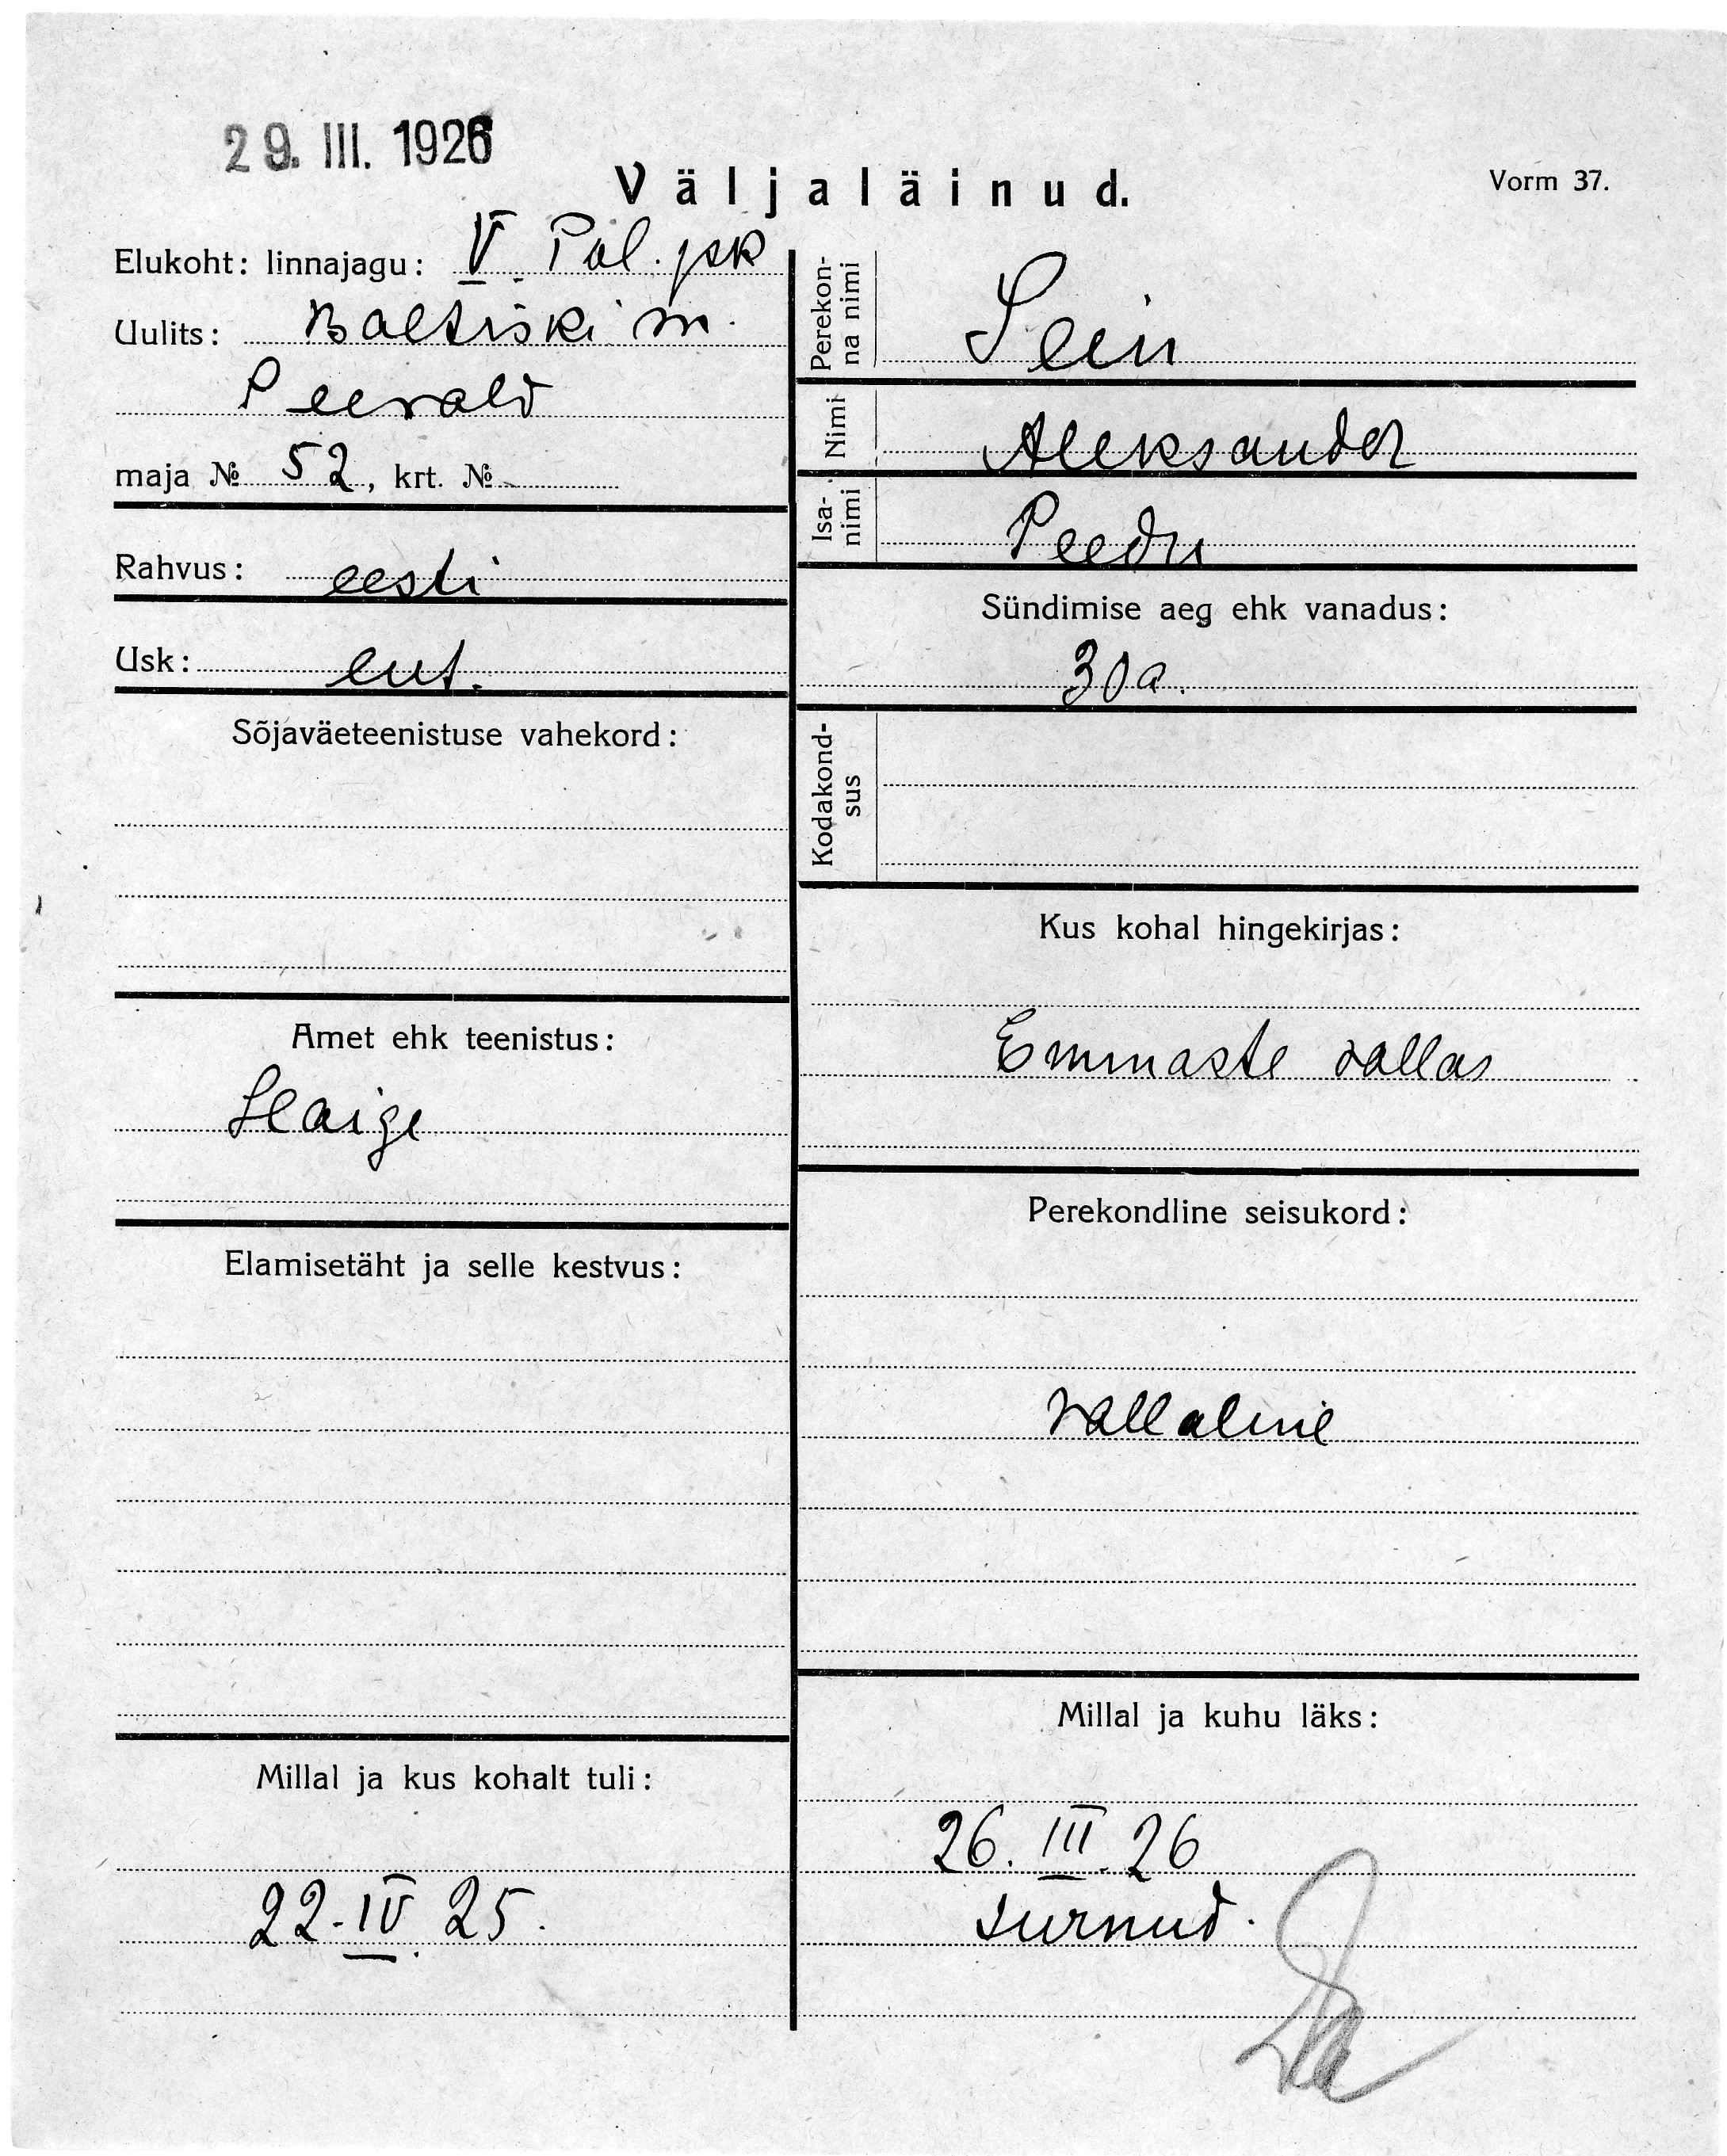 29. III. 1926
Väljaläinud.
Vorm 37.
Elukoht: linnajagu: V. Pol. jsk
Uulits: Baltiski m.
Seewald
maja № 52, krt. №
Rahvus: eesti
Usk: lut.
Sõjaväeteenistuse vahekord:
Amet ehk teenistus:
Haige
Elamisetäht ja selle kestvus:
Millal ja kus kohalt tuli:
22. IV. 25.
Perekon-
na nimi
Sein
Nimi Aleksander
Isa-
nimi
Peedu
Sündimise aeg ehk vanadus:
30 a.
Kodakond-
sus
Kus kohal hingekirjas:
Emmaste vallas
Perekondline seisukord:
vallaline
Millal ja kuhu läks:
26. III. 26
surnud.